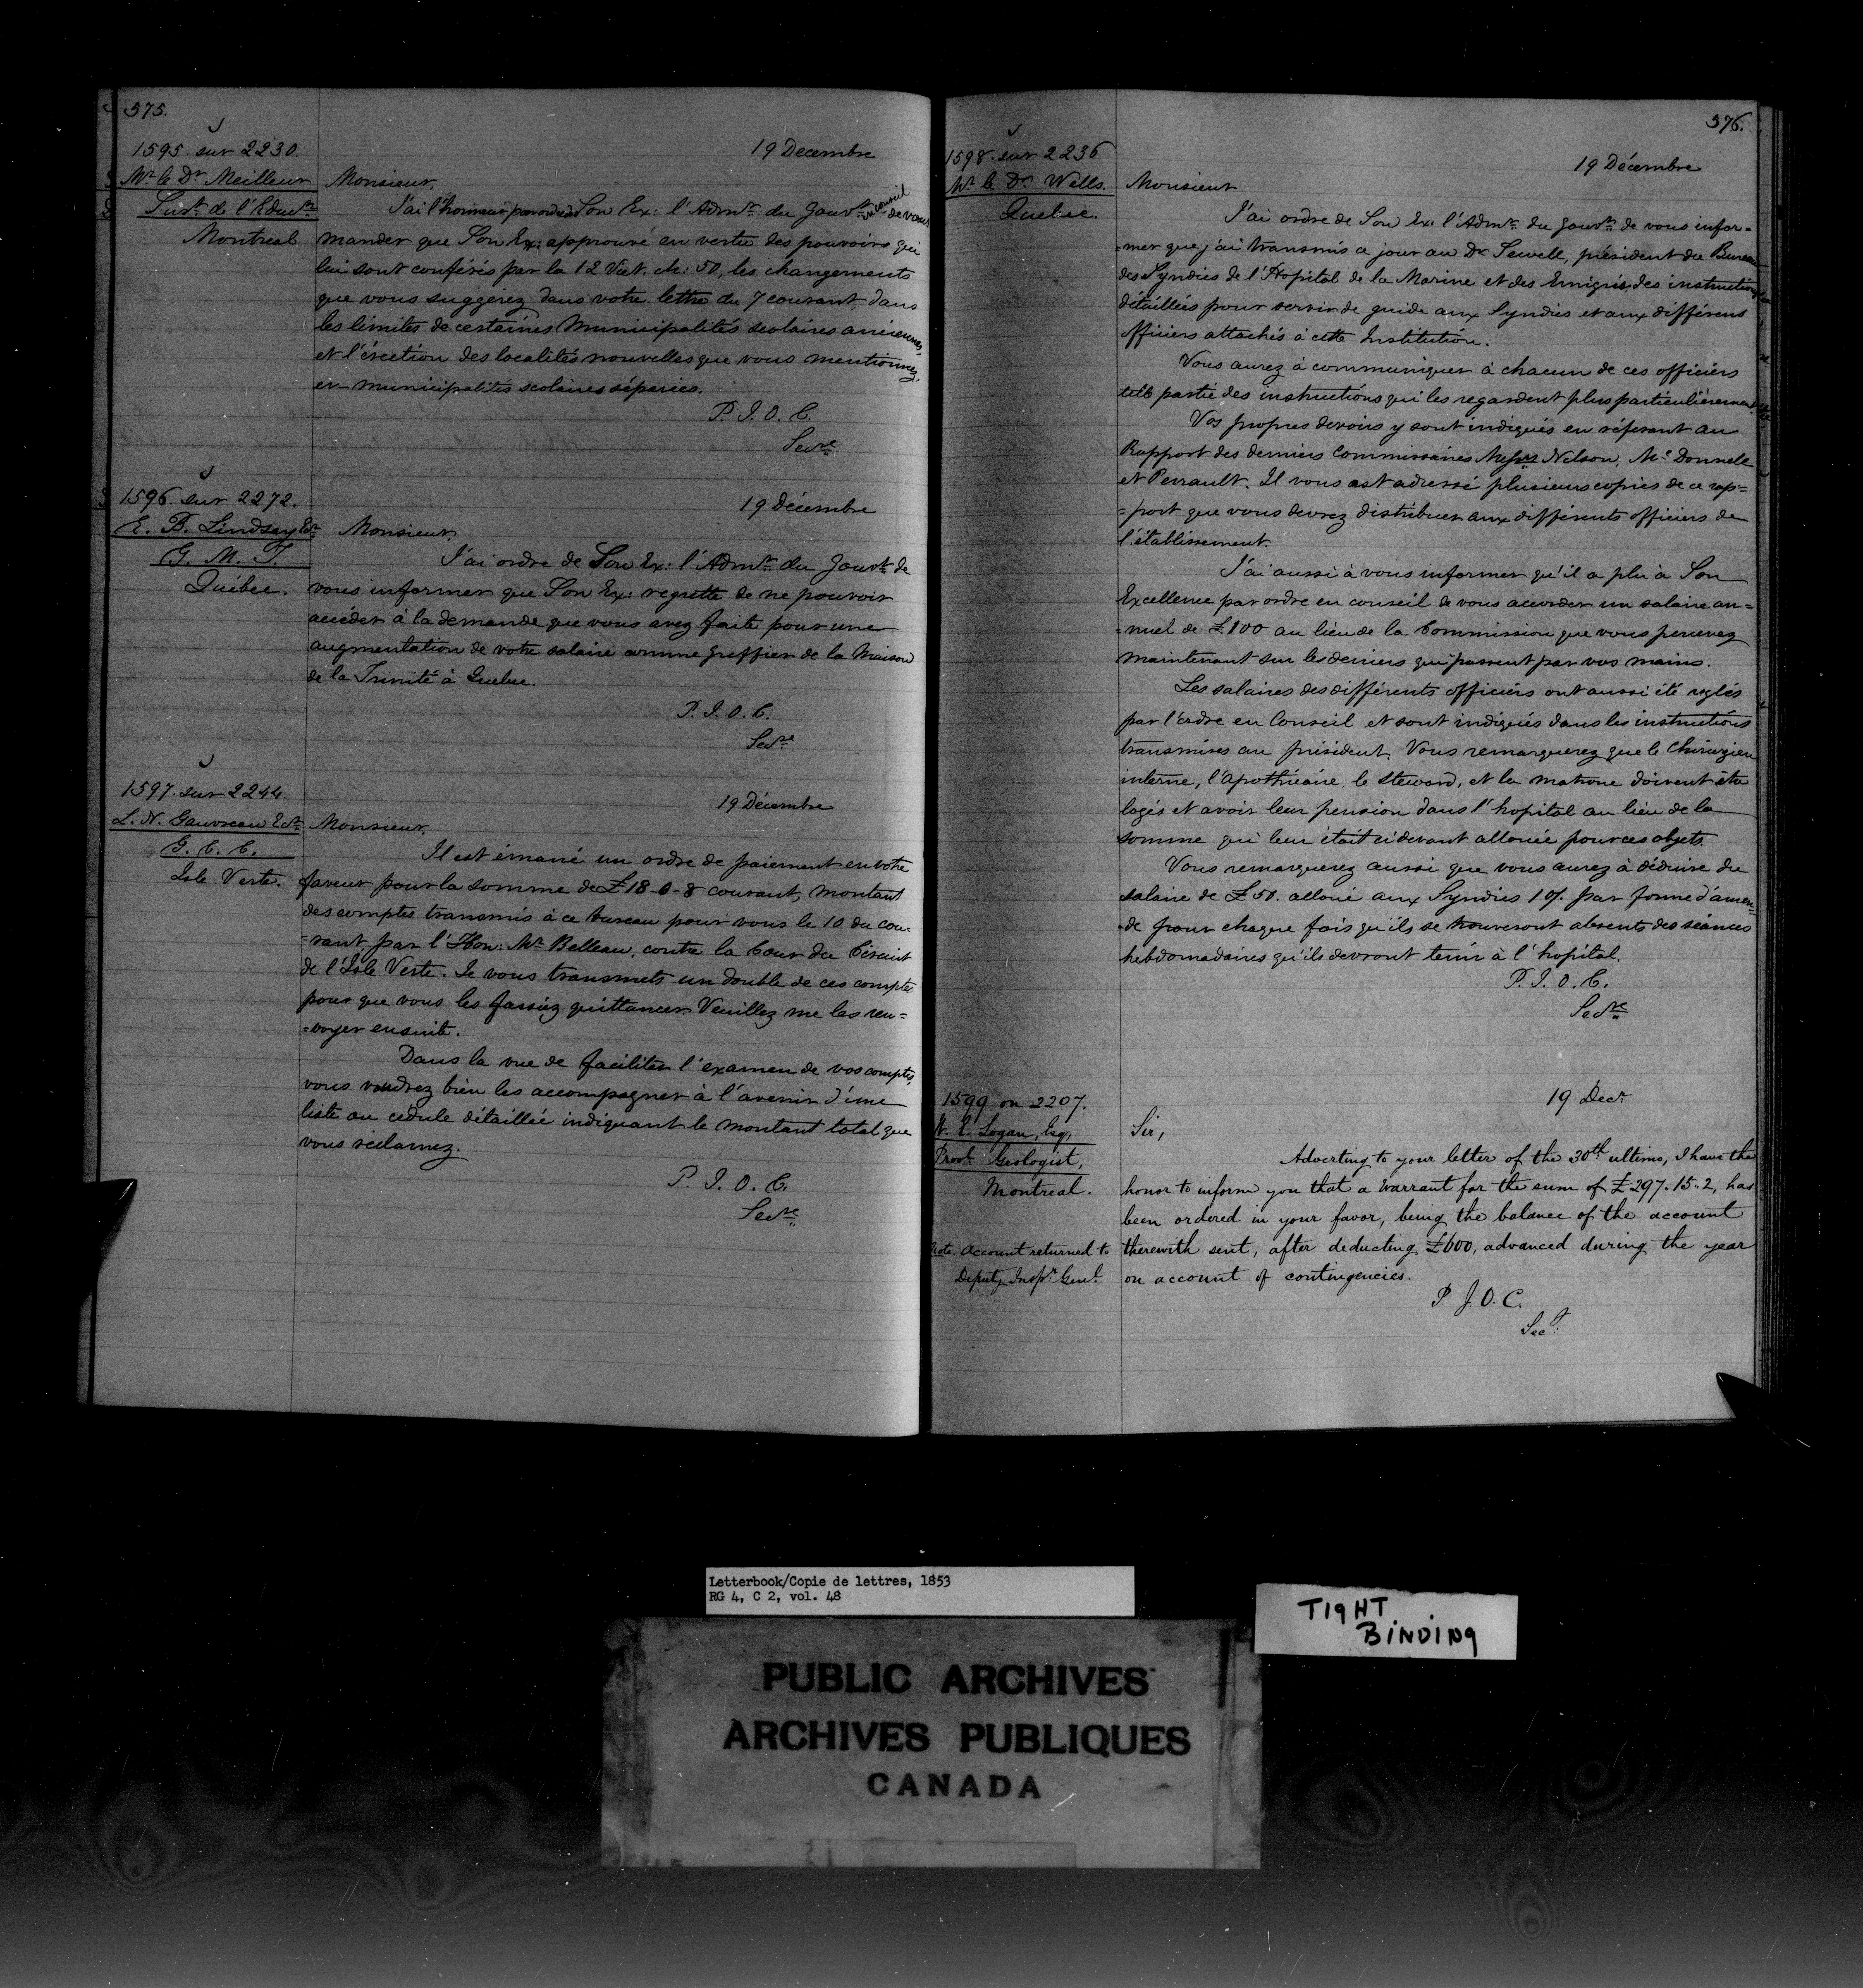 375.
1595. sur 2230.
Mr. le Dr. Meilleur
Surt. de l'Educn.
Montreal
19 Decembre
Monsieur,
J'ai l'honneur par ordre de Son Ex: l'Admr. du Gouvt. en conseil de vous
mander que Son Ex: approuve en vertu des pouvoirs qui
lui sont conférés par la 12 Vict. ch: 50, les changements
que vous suggérez dans votre lettre du 7 courant, dans
les limites de certaines Municipalités scolaires anciennes,
et l'érection des localités nouvelles que vous mentionnez,
en municipalités scolaires séparées.
P. J. O. C.
Secre.
1596. sur 2272.
E. B. Lindsay Ecr.
G. M. T.
Québec.
19 Décembre
Monsieur,
J'ai ordre de Son Ex: l'Admr. du Gouvt. de
vous informer que Son Ex: regrette de ne pouvoir
accéder à la demande que vous avez faite pour une
augmentation de votre salaire comme greffier de la Maison
de la Trinité à Québec.
P. J. O. C.
Secre.
1597. sur 2244.
L. N. Gauvreau Ecr.
G. C. C.
Isle Verte.
19 Décembre
Monsieur,
Il est émané un ordre de paiement en votre
faveur pour la somme de £18-0-8 courant, montant
des comptes transmis à ce bureau pour vous le 10 du cou-
=rant, par l'Hon: Mr. Belleau, contre la Cour du Circuit
de l'Isle Verte. Je vous transmets un double de ces comptes
pour que vous les fassiez quittancer. Veuillez me les ren=
=voyer ensuite.
Dans la vue de faciliter l'examen de vos comptes,
vous voudrez bien les accompagner à l'avenir d'une
liste ou cédule détaillée indiquant le montant total que
vous réclamez.
P. J. O. C.
Secre.
376.
1598. sur 2236
Mr. le Dr. Wells.
Québec.
19 Décembre
Monsieur
J'ai ordre de Son Ex: l'Admr. du Gouvt. de vous infor=
=mer que j'ai transmis ce jour au Dr. Sewell, président du Bureau
des Syndics de l'Hopital de la Marine et des Emigrés, des instructions
détaillées pour servir de guide aux Syndics et aux différens
officiers attachés à cette Institution.
Vous aurez à communiquer à chacun de ces officiers
telle partie des instructions qui les regardent plus particulièrement.
Vos propres devoirs y sont indiqués en référant au
Rapport des derniers Commissaires Messrs Nelson, McDonnell
et Perrault. Il vous est adressé plusieurs copies de ce rap=
=port que vous devrez distribuer aux différents officiers de
l'établissement.
J'ai aussi à vous informer qu'il a plu à Son
Excellence par ordre en conseil de vous accorder un salaire an=
=nuel de £100 au lieu de la Commission que vous percevez
maintenant sur les deniers qui passent par vos mains.
Les salaires des différents officiers ont aussi été réglés
par l'ordre en Conseil et sont indiqués dans les instructions
transmises au président. Vous remarquerez que le Chirurgien
interne, l'apothicaire, le steward, et la matrone doivent être
logés et avoir leur pension dans l'hopital au lieu de la
somme qui leur était ci devant allouée pour ces objets.
Vous remarquerez aussi que vous aurez à déduire du
salaire de £50. alloué aux Syndics 10/. par forme d'amen=
de pour chaque fois qu'ils se trouveront absents des séances
hebdomadaires qu'ils devront tenir à l'hopital.
P. J. O. C.
Secre
1599 on 2207.
W. E. Logan, Esq,
Provl. Geologist,
Montreal.
Note. Account returned to
Deputy Inspr. Genl.
19 Decr.
Sir,
Adverting to your letter of the 30th ultimo, I have the
honor to inform you that a Warrant for the sum of £297. 15. 2, has
been ordered in your favor, being the balance of the account
therewith sent, after deducting £600, advanced during the year
on account of contingencies.
P. J. O. C.
Secy.
Letterbook/Copie de lettres, 1853
RG 4, C 2, vol. 48
TIGHT
BINDING
PUBLIC ARCHIVES
ARCHIVES PUBLIQUES
CANADA